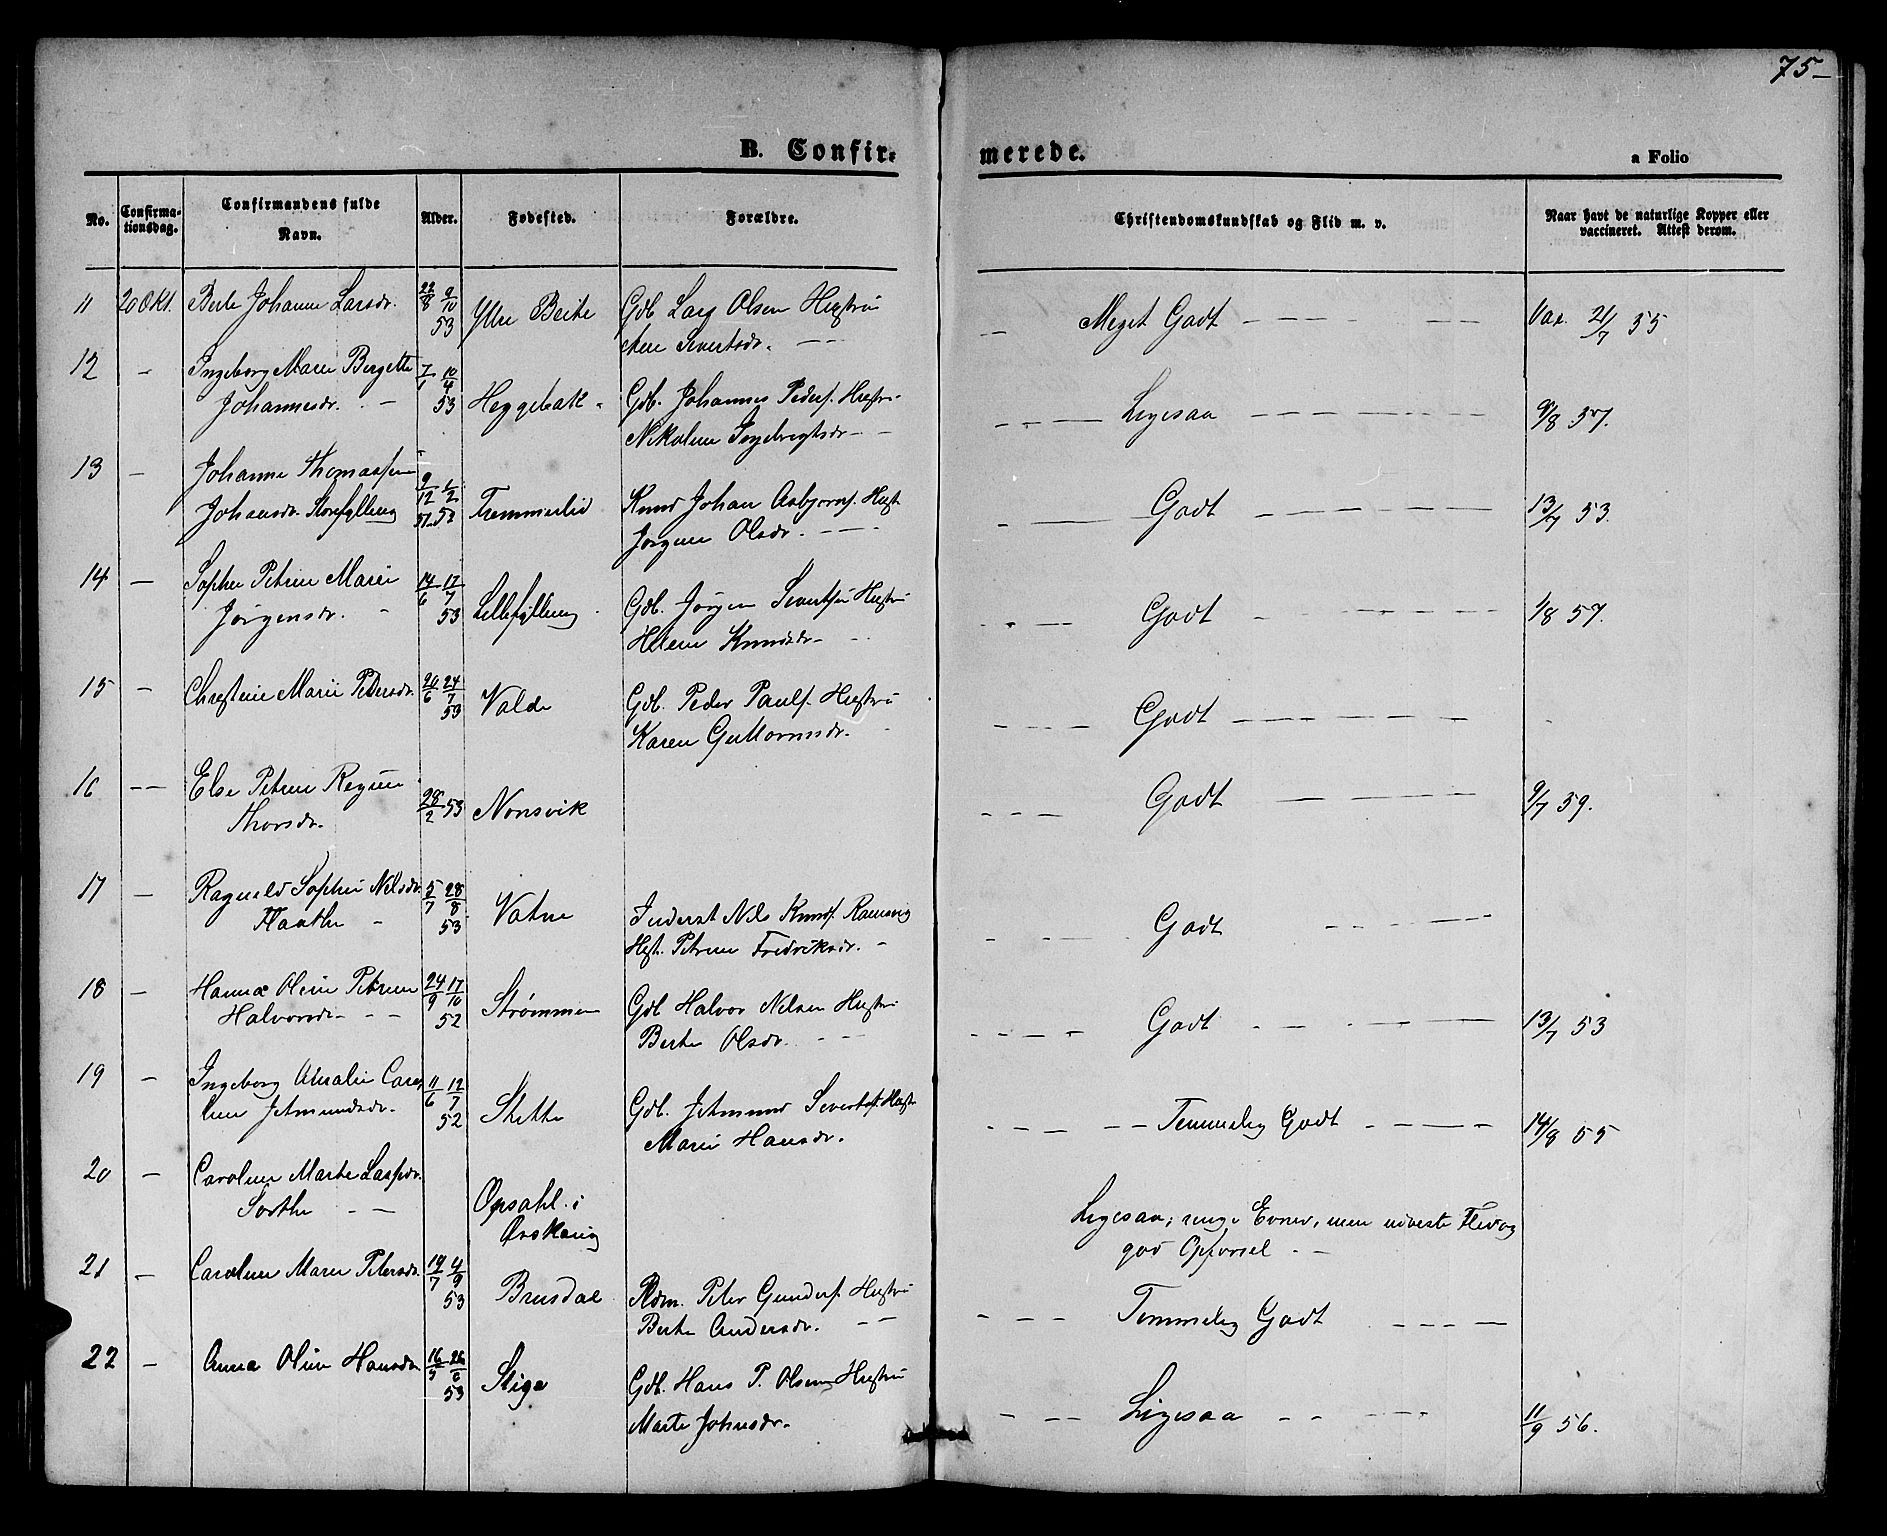 75-
B. Confir-
merede.
a Folio
No.
Confirma-
tionsdag.
Confirmandens fulde
Navn.
Alder.
Fødested.
Forældre.
Christendomskundskab og Flid m. v.
Naar havt de naturlige Kopper eller
vaccineret. Attest derom.
11 20 Okt. Berte Johanne Larsdr. 22/8 9/10 53 Ytre Beite Gdb Lars Olsen Hustru
Ane Sivertsdr. - -
- Meget Godt - - - - - - Vax. 21/7 55
12 - Ingeborg Marie Bergitte
Johannesdr. - - 7/1 10/4 53 Heggebak - Gdb. Johannes Peders. Hustru
Nikoline Ingebrigtsdr - -
- - - Ligesaa - - - - - - 9/8 57.
13 - Johanne Thomassine
Johansdr. Storefylling 9/12 51 1/2 52 Tremmerlid Knud Johan Asbjørns. Hust
Jørgine Olsdr. - - -
- - Godt - - - - - - 13/7 53.
14 - Sophie Petrine Marie
Jørgensdr. - 14/6 17/7 53 Lillefylling Gdb. Jørgen Sivertsen Hustru
Helene Knudsdr - -
- - - Godt - - - - - - 1/8 57.
15 - Christine Marie Pedersdr. 20/6 24/7 53 Valde Gdb. Peder Pauls. Hustru
Karen Guttormsdr.
- - - Godt - - - - - - -
16 - - Else Petrine Regine
Thorsdr. 28/2 53 Nonsvik
- - - Godt - - - - 9/7 59.
17 - Ragnild Sophie Nilsdr.
Flaathe - 5/7 28/8 53 Vatne Inderst Nils Knuds. Ramsvig
Hust. Petrine Fredriksdr. -
- - Godt - - - -
18 - Hanna Oline Petrine
Halvorsdr - - - 24/9 17/10 52 Strømmen Gdb Halvor Nilsen Hustru
Berte Olsdr. - - -
- - - - Godt - - - - - 13/7 53
19 - Ingeborg Amalie Caro-
line Jetmundsdr. 11/6 12/7 52 Slette Gdb. Jetmund Sivertss. Hust.
Marie Hansdr.
- - - - - - Temmelig Godt - - - - 14/8 55
20 - Caroline Marte Larssdr.
- - Opsahl i
Ørskoug
Ligesaa; ringe Evner, men udviste Flid og
god Opførsel. -
21 - Caroline Marie Petersdr. 19/7 4/9 53 Brusdal Rdm. Peter Gunders. Hustru
Berte Andersdr. - -
- - - - Temmelig Godt - - - -
22 - Anna Oline Hansdr 16/5 26/6 53 Slige Gdb. Hans P. Olsen Hustru
Marte Johnsdr.
- - - Ligesaa - - - - 11/9 56.